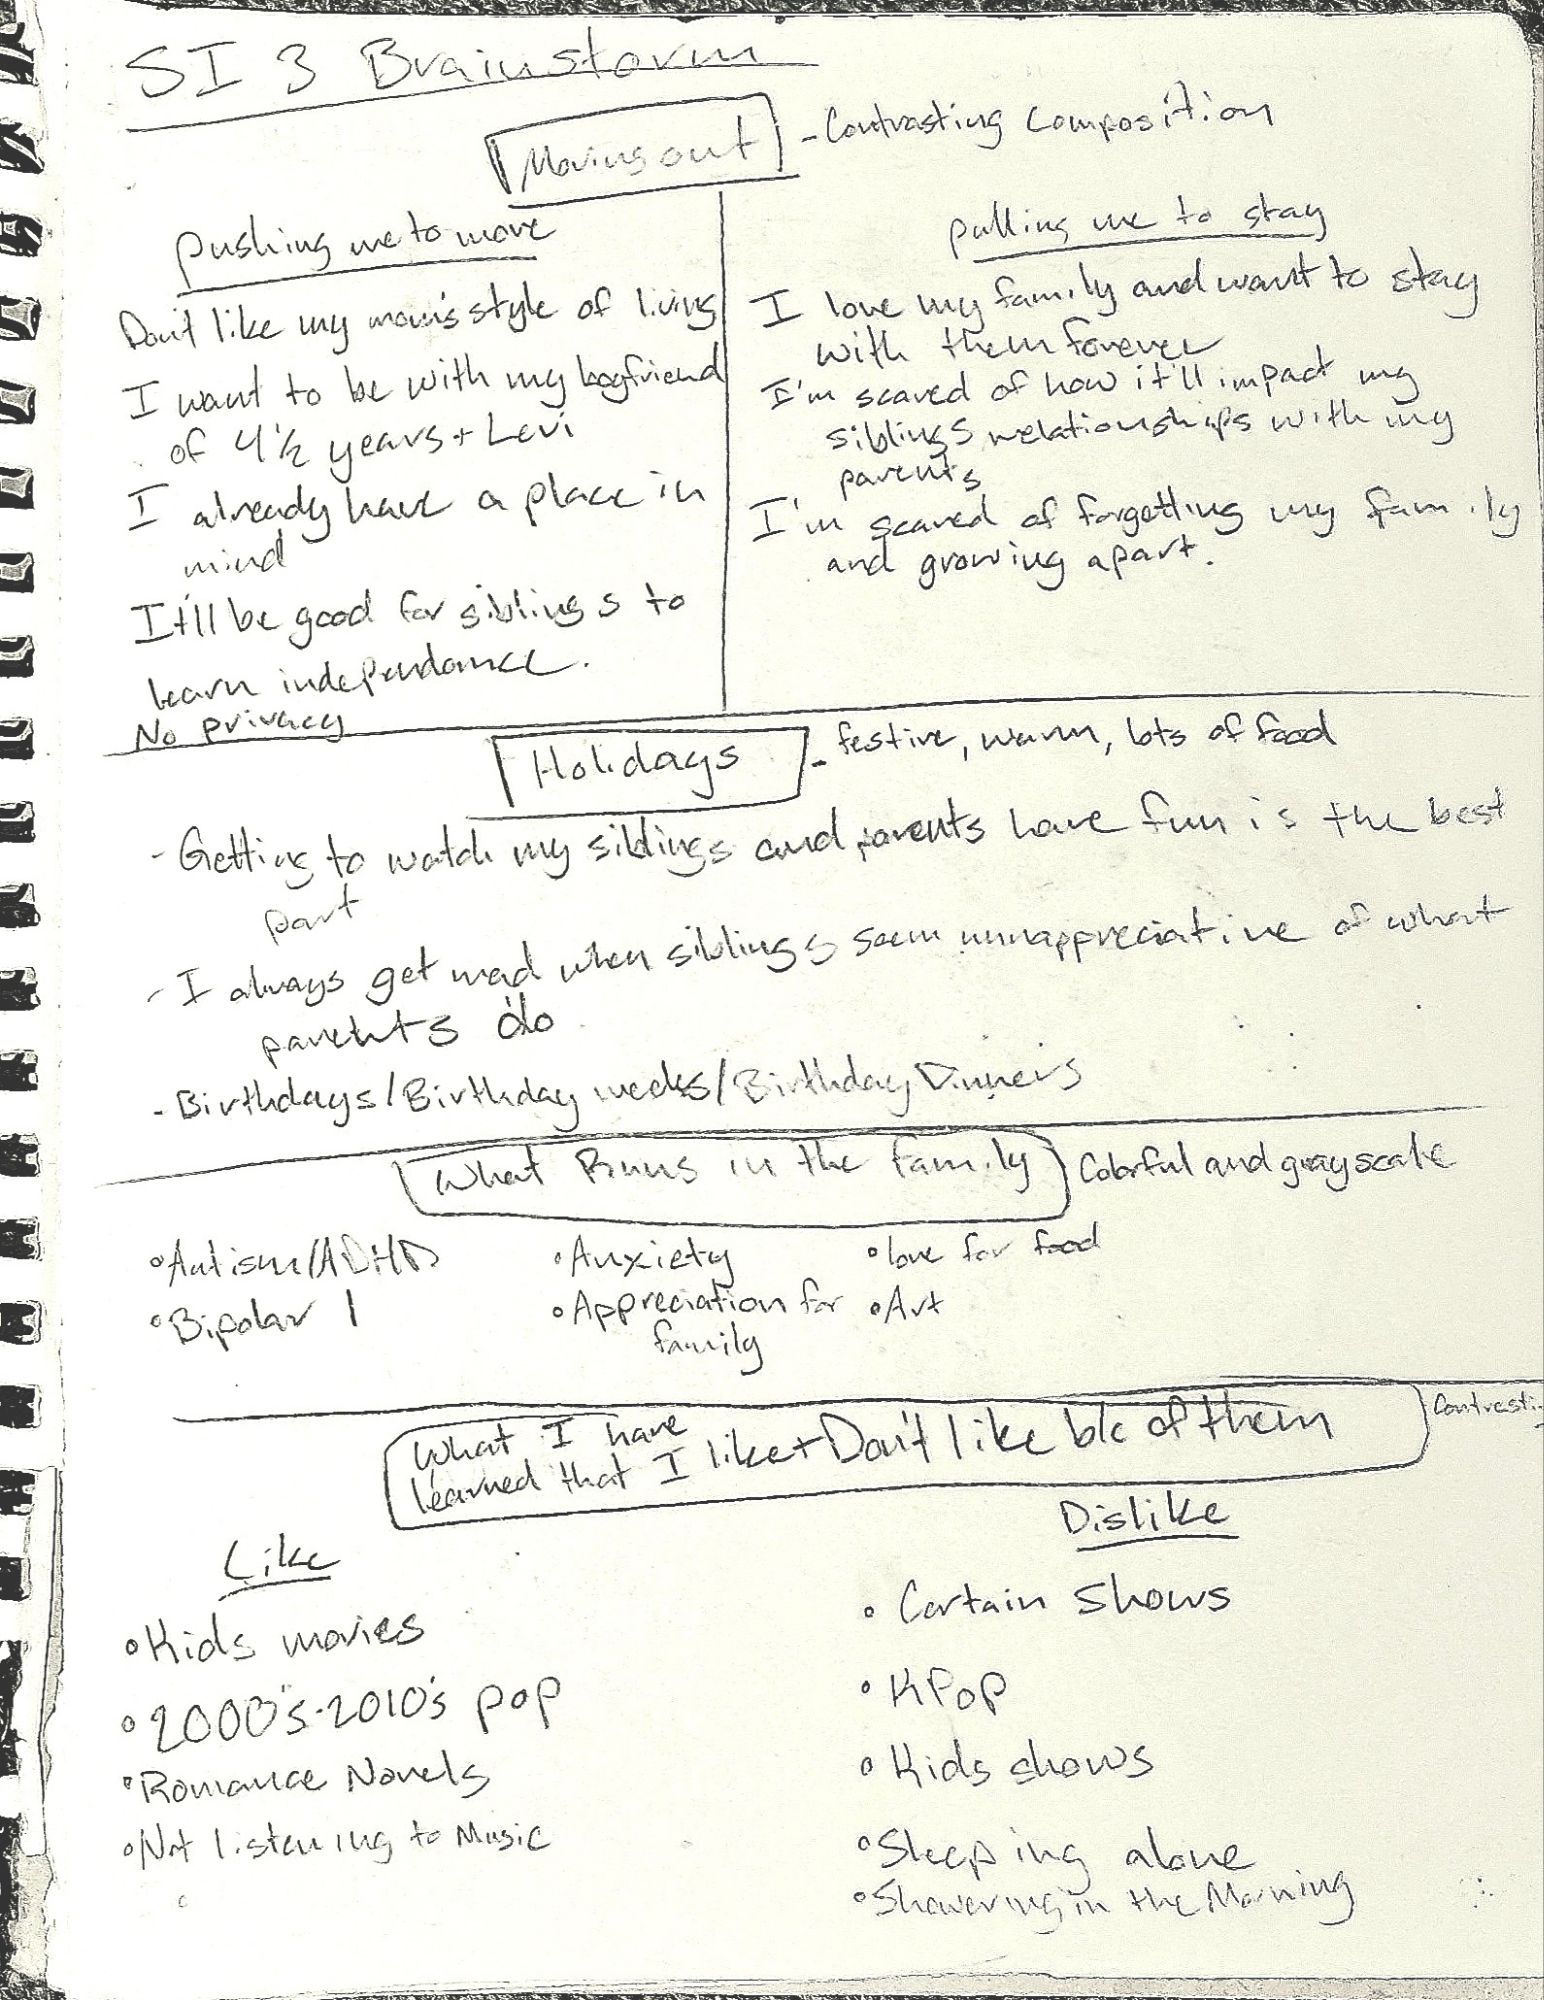 SI 3 Brainstorm
Moving out - Contrasting composition
pushing me to move
Don't like my mom's style of living
I want to be with my boyfriend
of 4 1/2 years + Levi
I already have a place in
mind
It'll be good for siblings to
learn independance.
No privacy
pulling me to stay
I love my family and want to stay
with them forever
I'm scared of how it'll impact my
siblings relationships with my
parents
I'm scared of forgetting my family
and growing apart.
Holidays - festive, warm, lots of food
- Getting to watch my siblings and parents have fun is the best
part
- I always get mad when siblings seem unnappreciative of what
parents do
- Birthdays/Birthday weeks/Birthday Dinners
What Runs in the family Colorful and grayscale
• Autism/ADHD • Anxiety • love for food
• Bipolar 1 • Appreciation for • Art
family
What I have
learned that I like + Don't like b/c of them Contrasti
Like
• Kids movies
• 2000's-2010's pop
• Romance Novels
• Not listening to Music
Dislike
• Certain shows
• KPop
• Kids shows
• Sleeping alone
• Showering in the Morning